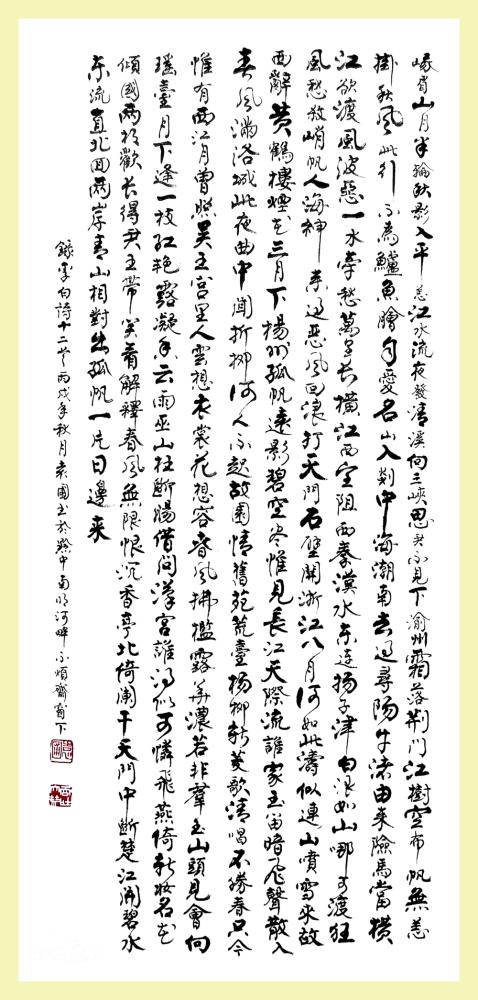 峨眉山月半輪秋影入平羌江水流夜發清溪向三峽思君不見下渝州霜落荊門江樹空布帆無恙
掛秋風此行不為鱸魚膾自愛名山入剡中海潮南去過尋陽牛渚由來險馬當橫
江欲渡風波惡一水牽愁萬里長橫江西望阻西秦漢水東連揚子津白浪如山哪可渡狂
風愁殺峭帆人海神來過惡風回浪打天門石壁開浙江八月何如此濤似連山噴雪來故
西辭黃鶴樓煙花三月下揚州孤帆遠影碧空盡惟見長江天際流誰家玉笛暗飛聲散入
春風滿洛城此夜曲中聞折柳何人不起故園情舊苑荒臺楊柳新菱歌清唱不勝春只今
惟有西江月曾照吳王宮里人雲想衣裳花想容春風拂檻露華濃若非羣玉山頭見會向
瑤臺月下逢一枝紅艷露凝香云雨巫山枉斷腸借問漢宮誰得似可憐飛燕倚新妝名花
傾國兩相歡長得君王帶笑看解釋春風無限恨沉香亭北倚闌干天門中斷楚江開碧水
東流直北回兩岸青山相對出孤帆一片日邊來
錄李白詩十二首丙戌年秋月袁國玉於黔中南明河畔不煩齋窗下